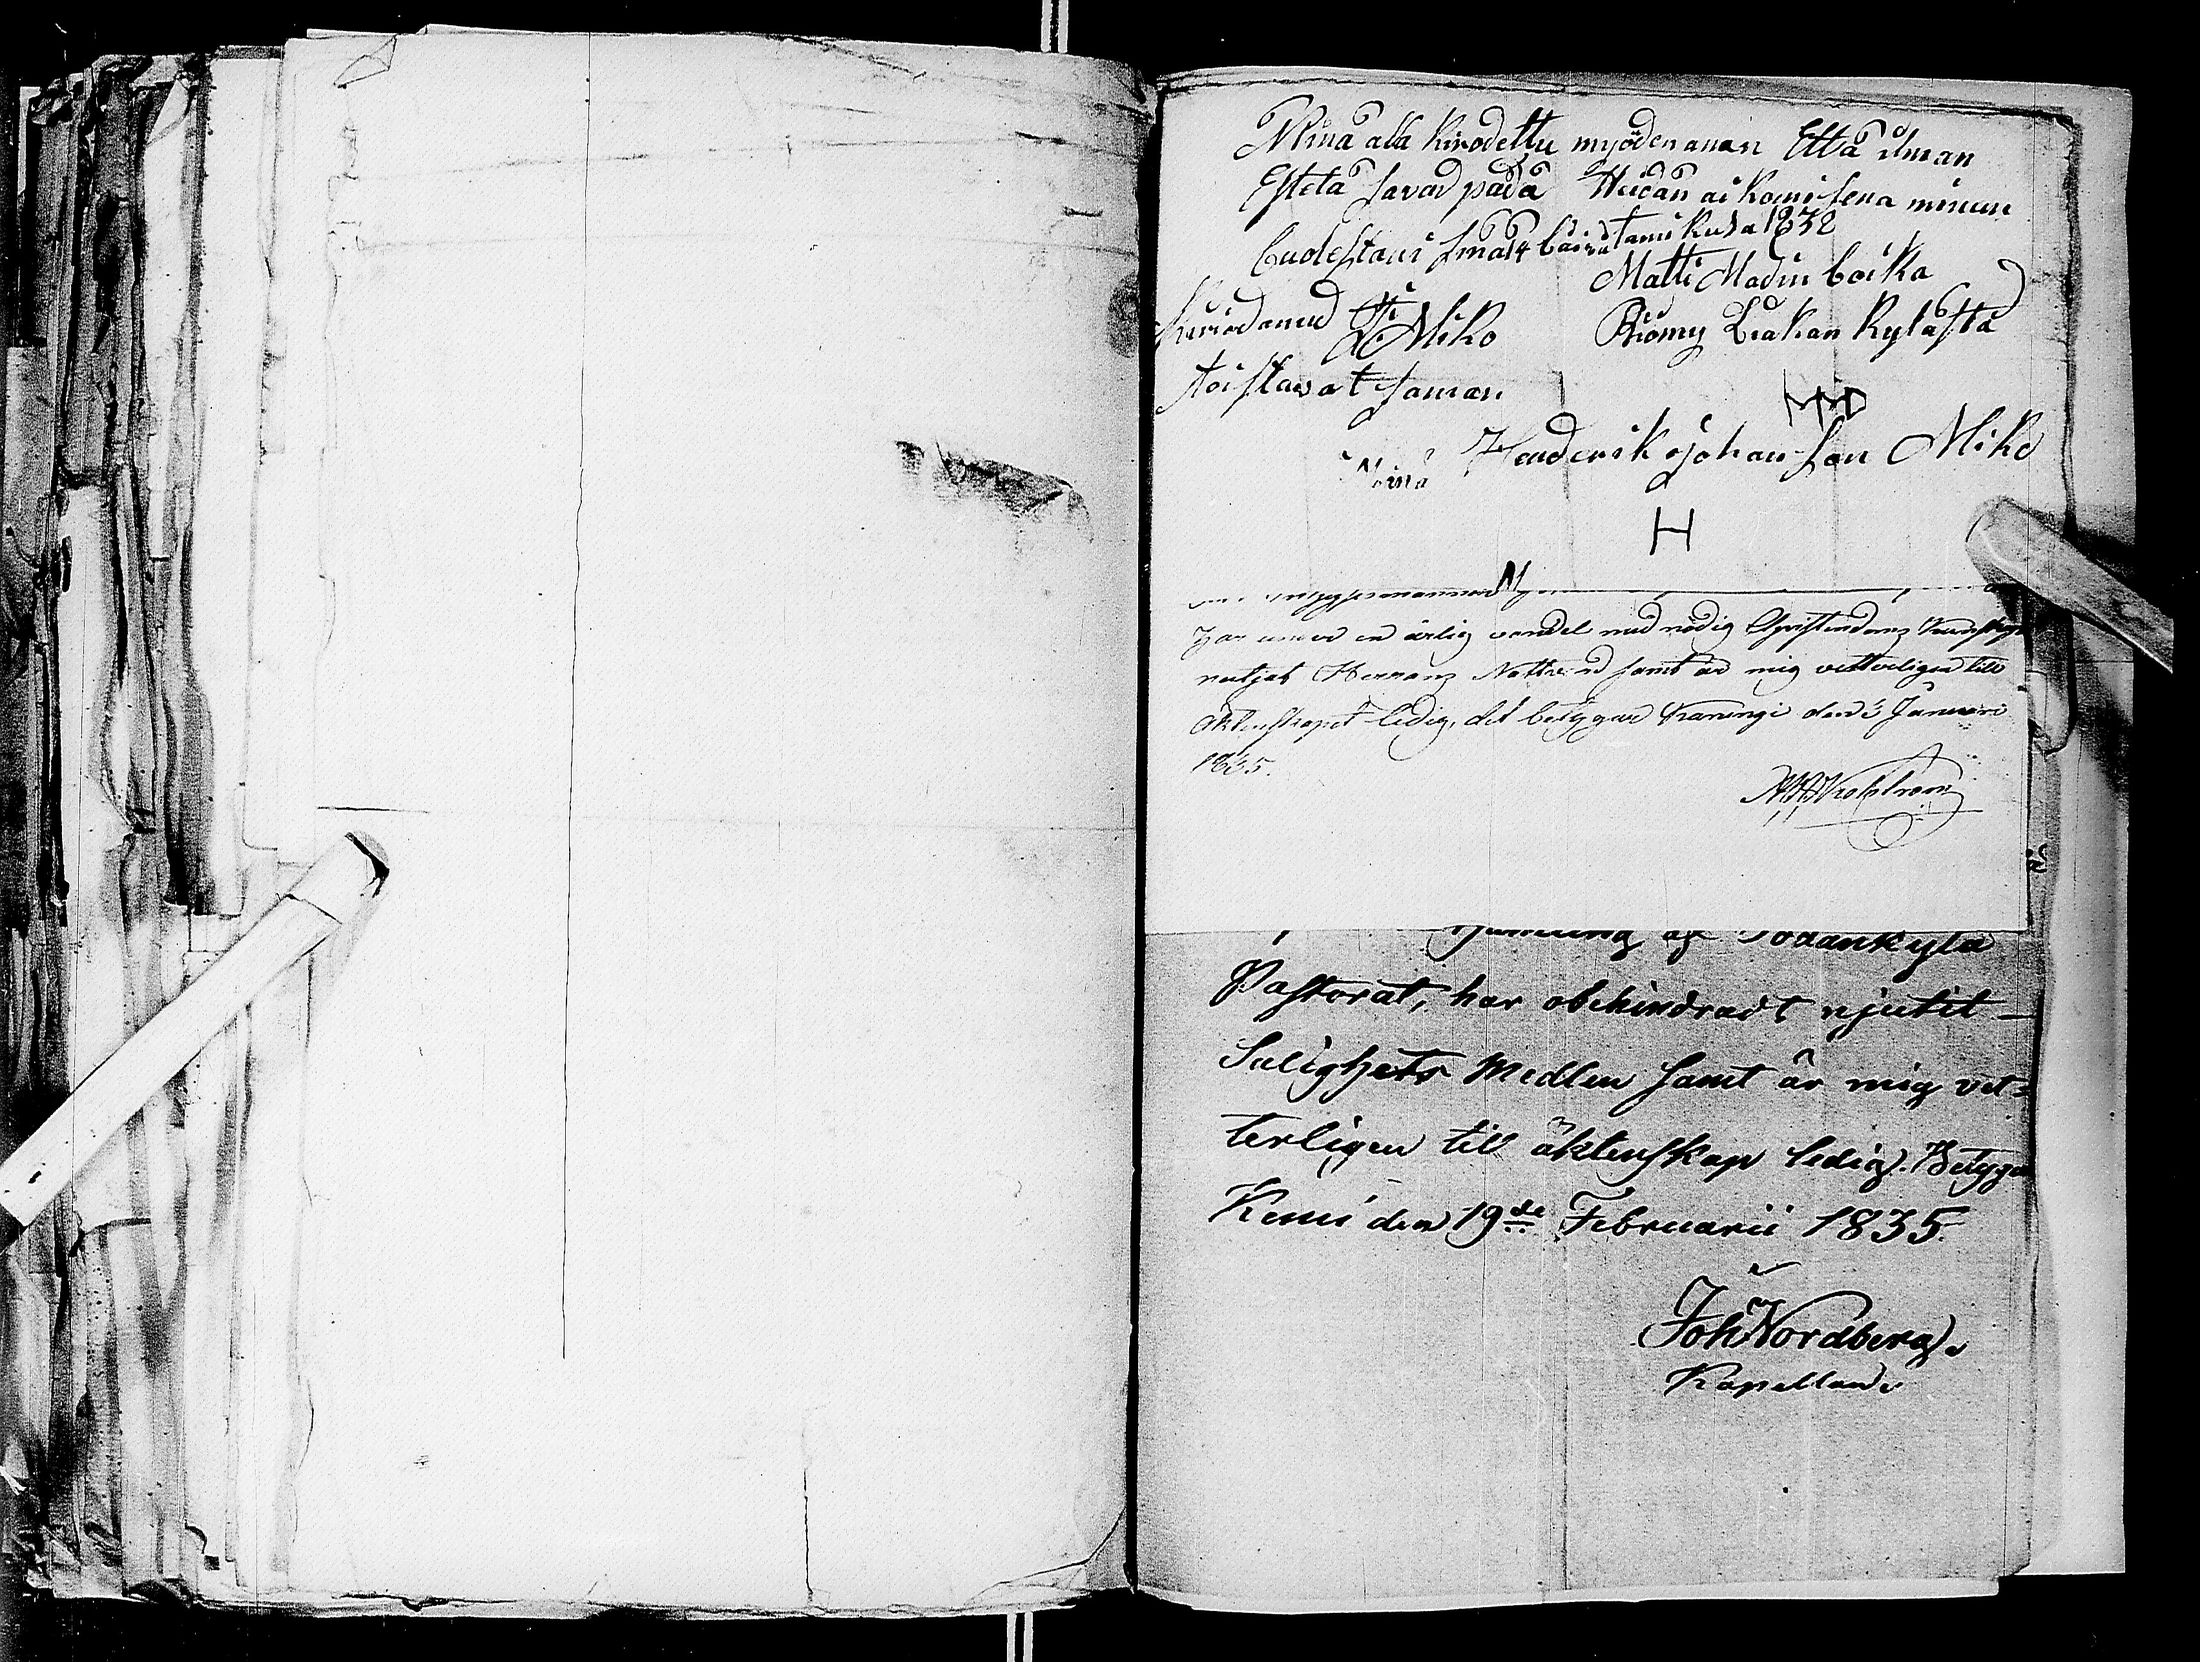 Minä ala kiriodettu myöden anan Että ilman
Estetä saavad pädä Heidän ai komisena minun
Cuolestani smalt Cäivä tami kuda 1832
Matti Madin Coika
kiriod anud Miko
Riömy Liakan Kylästä
toistavat saman
MMD
Henderik Johan son Miko
Minä
H
en ärlig vandel med nödig Christendoms
nutjat Herrans Nattvard samt är mig vetterligen till
äktenskapet ledig, det betygar Haminge den 3 Januari
1835.
af Sodankylä
Pastorat, har obehindradt njutit
Salighets Medlen samt är mig vet-
terligen till äktenskap ledig. Betygar
Kemi den 19de Februarii 1835.
Joh Nordberg.
Kapellan.